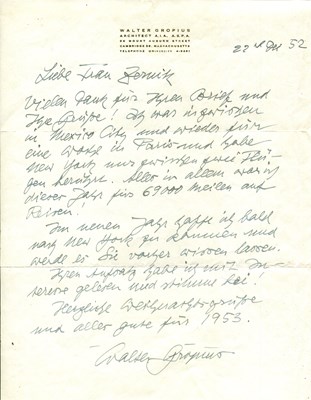 WALTER GROPIUS
ARCHITECT A.I.A. G.S.P.A.
CAMBRIDGE 38, MASSACHUSETTS
22nd Dez 52
Liebe Frau
Vielen Dank für Ihren Brief und
Ihre Grüße! Ich war inzwischen
in Mexico City und wieder für
eine Woche in Paris und habe
New York nur zwischen zwei Flü-
gen berührt. Alles in allem war ich
dieses Jahr für 69000 Meilen auf
Reisen.
Im neuen Jahr hoffe ich bald
nach New York zu kommen und
werde es Sie vorher wissen lassen.
Ihren Aufsatz habe ich mit In-
teresse gelesen und stimme bei!
Herzliche Weihnachtsgrüße
und alles gute für 1953.
Walter Gropius